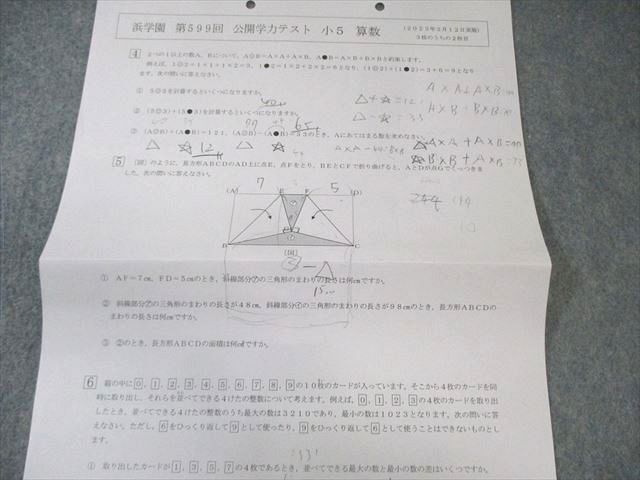 浜学園 第599回 公開学力テスト 小5 算数
(2023年2月12日実施)
3枚のうちの2枚目
4 2つの1以上の数A、Bについて、A◎B=A×A+A×B、A●B=A×B+B×Bと約束します。
例えば、1◎2=1×1+1×2=3、1●2=1×2+2×2=6となり、(1◎2)+(1●2)=3+6=9となり
ます。次の問いに答えなさい。
① 5◎3を計算するといくつになりますか。
② (5◎3)+(5●3)を計算するといくつになりますか。
③ (A◎B)+(A●B)=121、(A◎B)-(A●B)=33のとき、Aにあてはまる数を求めなさい。
A×A+A×B
△+☆=121
A×B+B×B
△-☆=33
△ ☆ 12
65
△A×A+A×B
☆B×B+A×B
5 (図)のように、長方形ABCDのAD上に点E、点Fをとり、BEとCFで折り曲げると、AとDが点Gでくっつきま
した。次の問いに答えなさい。
(A) 7 E F 5 (D)
B C
(図)
① AF=7cm、FD=5cmのとき、斜線部分㋐の三角形のまわりの長さは何cmですか。
② 斜線部分㋐の三角形のまわりの長さが48cm、斜線部分㋑の三角形のまわりの長さが98cmのとき、長方形ABCDの
まわりの長さは何cmですか。
③ ②のとき、長方形ABCDの面積は何cm²ですか。
6 箱の中に0、1、2、3、4、5、6、7、8、9の10枚のカードが入っています。そこから4枚のカードを同
時に取り出し、それらを並べてできる4けたの整数について考えます。例えば、0、1、2、3の4枚のカードを取り出
したとき、並べてできる4けたの整数のうち最大の数は3210であり、最小の数は1023となります。次の問いに答
えなさい。ただし、6をひっくり返して9として使ったり、9をひっくり返して6として使うことはできないものとし
ます。
① 取り出したカードが1、3、5、7の4枚であるとき、並べてできる最大の数と最小の数の差はいくつですか。